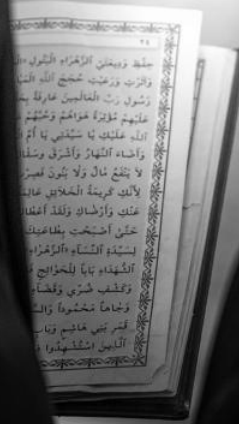 ٢٨
حِفْظِ وَدِيعَتَيِ الزَّهْرَاءِ الْبَتُولِ
وَآثَرْتِ وَرَعَيْتِ حُجَجَ اللهِ
رَسُولِ رَبِّ الْعَالَمِينَ عَارِفَةً
عَلَيْهِمْ مُؤْثِرَةً هَوَاهُمْ وَحُبَّهُمْ
اللهِ عَلَيْكِ يَا سَيِّدَتِي يَا
وَأَضَاءَ النَّهَارُ وَأَشْرَقَ
لَا يَنْفَعُ مَالٌ وَلَا بَنُونَ
لِأَنَّكِ كَرِيمَةُ الْخَلَائِقِ
عَنْكِ وَأَرْضَاكِ وَلَقَدْ
حَتَّى أَصْبَحْتِ بِطَاعَتِكِ
لِسَيِّدَةِ النِّسَاءِ الزَّهْرَاءِ
الشُّهَدَاءِ بَاباً لِلْحَوَائِجِ
وَكَشْفِ ضُرِّي
وَجَاهاً مَحْمُوداً
قَمَرِ بَنِي هَاشِمٍ وَبَابِ
الَّذِينَ اسْتُشْهِدُوا